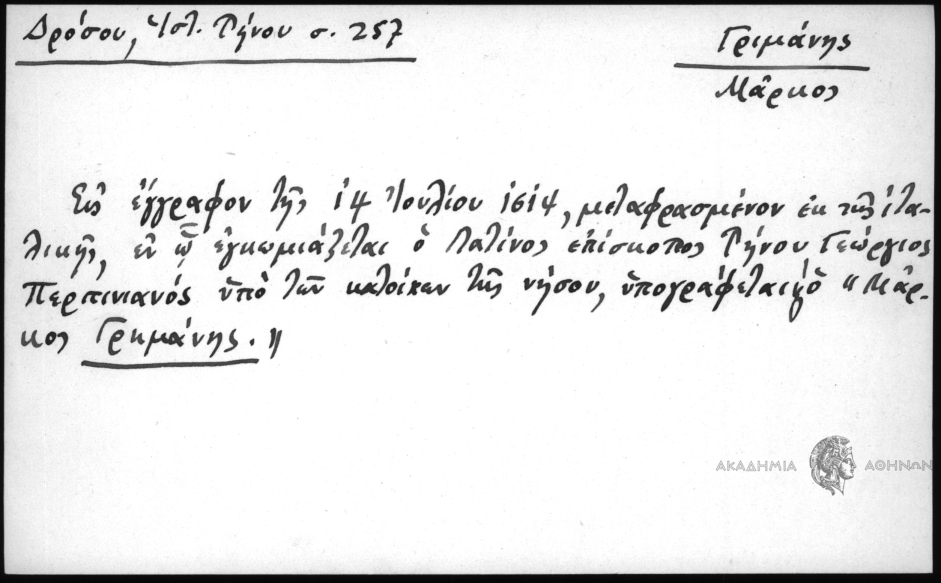 Δρόσου, Ἱστ. Τήνου σ. 257
Γριμάνης
Μᾶρκος
Εἰς ἔγγραφον τῆς 14 Ἰουλίου 1614, μεταφρασμένον ἐκ τῆς ἰτα-
λικῆς, ἐν ᾧ ἐγκωμιάζεται ὁ Λατῖνος ἐπίσκοπος Τήνου Γεώργιος
Περπινιανός ὑπὸ τῶν κατοίκων τῆς νήσου, ὑπογράφεται ὁ «Μᾶρ-
κος Γρημάνης.»
ΑΚΑΔΗΜΙΑ ΑΘΗΝΩΝ